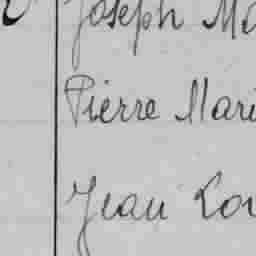 Joseph Ma
Pierre Mari
Jean Lou